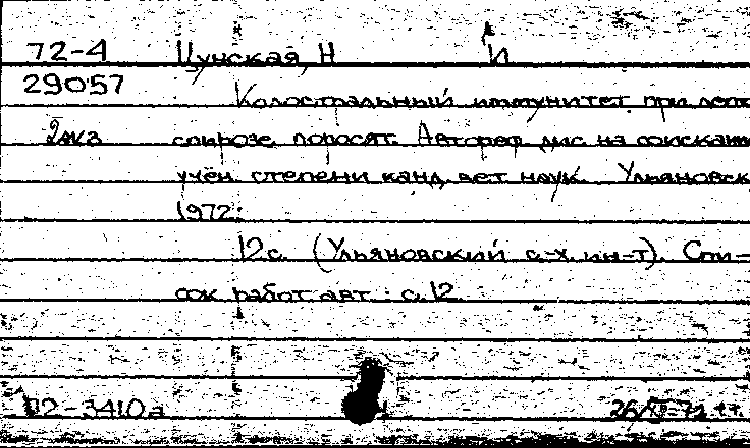 72-4 Цунская, Н И
29057
Колостральный иммунитет при лепто-
2 экз спирозе поросят. Автореф дис на соискание
учён. степени канд вет наук. Ульяновск
1972.
12 с. (Ульяновский с-х. ин-т). Спи-
сок работ авт.: с. 12
П2 3410а 26/XII-72